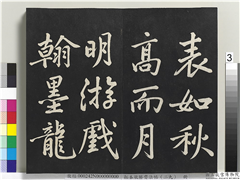 表如秋
高而月
明游戲
翰墨龍
3